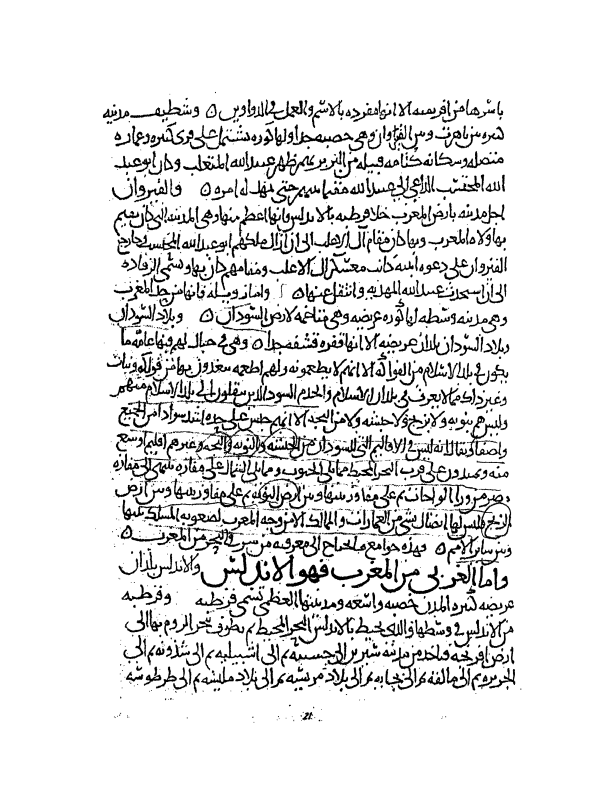 باسرها من افريقيه الا انها مفرده بالاسم والعمل في الدواوين ٥ وسطيف مدينه
كبيره بين تاهرت وبين القيروان وهي خصبه جدا ولها كوره تشتمل على قرى كثيره وعماره
متصله وسكانه كتامه قبيله من البربر بهم ظهر عبيد الله المتغلب وكان ابو عبد
الله المحتسب الداعي الى عبيد الله مقيما بينهم حتى مهد له امره ٥ والقيروان
اجل مدينه بارض المغرب خلا قرطبه بالاندلس وانها اعظم منها وهي المدينه التي كان يقيم
بها ولاه المغرب وبها كان مقام آل الاغلب الى ان ازال ملكهم ابو عبد الله المحتسب وخارج
القيروان على دعوه ابنيه كانت معسكر آل الاغلب ومقامهم كان بها وتسمى الرقاده
الى ان استحدث عبيد الله المهديه وانتقل عنها ٥ واما زويله فانها من حد المغرب
وهي مدينه وسطه لها كوره عريضه وهي متاخمه لارض السودان ٥ وبلاد السودان
وبلاد السودان بلدان عريضه الا انها قفره قشفه جدا ٥ وهي في جبال لهم فيها عامه ما
يكون في بلاد الاسلام من الفواكه الا انهم لا يطعمونه ولهم اطعمه يتغذون بها من فواكه ونبات
وغير ذلك مما لا يعرف في بلدان الاسلام والخدم السود الذين يقعلون الى بلاد الاسلام منهم
وليس هم بنوبه ولا بزنج ولا حبشه ولا من البجه الا انهم جنس على حده اشد سوادا من الجميع
واصفا ويقال انه ليس في الاقاليم التي للسودان من الحبشه والنوبه والبجه وغيرهم اقليم اوسع
منه ويمتدون على قرب البحر المحيط مما يلي الجنوب ومما يلي الشمال على مفازه تنتهي الى مفازه
مصر من ورا الواحات ثم على مفاوز بينها وبين ارض النوبه ثم على مفاوز بينها وبين ارض
الزنج وليس لها اتصال بشي من العمارات والممالك الا من وجه المغرب لصعوبه المسالك بينها
وبين سائر الامم ٥ فهذه جوامع ما يحتاج الى معرفته من شرقي البحر من المغرب ٥
واما الغربي من المغرب فهو الاندلس والاندلس بلدان
عريضه كثيره المدن خصبه واسعه ومدينتها العظمى تسمى قرطبه وقرطبه
من الاندلس في وسطها والذي يحيط بالاندلس البحر المحيط ثم يطوف بحر الروم بها الى
ارض افرنجه فياخذ من مدينه شنترين الى جسه ثم الى اشبيليه ثم الى شذونه ثم الى
الجزيره ثم الى مالقه ثم الى بجانه ثم الى بلاد مرسيه ثم الى بلاد بلنسيه ثم الى طرطوشه
21